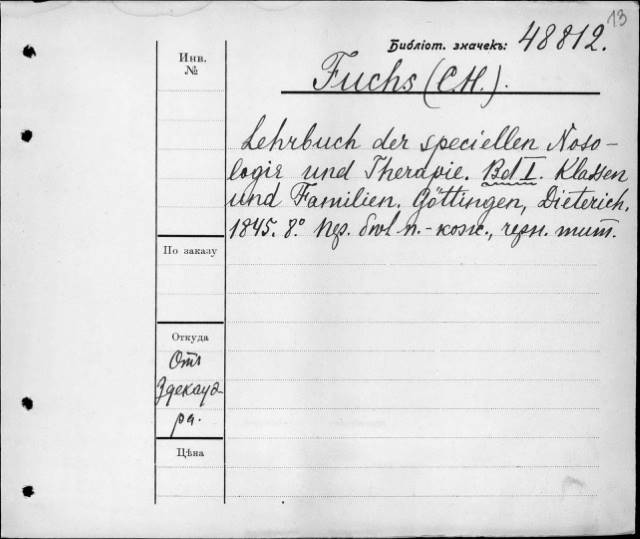 13
Библіот. значекъ: 48812.
Инв.
№
Fuchs (C.H.).
Lehrbuch der speciellen Noso-
logie und Therapie. Bd I. Klassen
und Familien. Göttingen, Dieterich.
1845. 8.°
По заказу
Откуда
Отъ
Здекауэ-
ра.
Цѣна